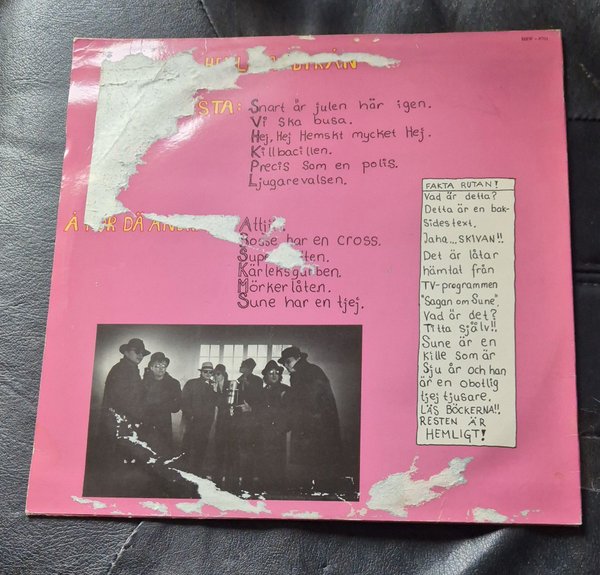 STA: Snart år julen här igen.
Vi ska busa.
Hej, Hej Hemskt mycket Hej.
Killbacillen.
Precis som en polis.
Ljugarevalsen.
Bosse har en cross.
Kärleksgubben.
Mörkerlåten.
Sune har en tjej.
FAKTA RUTAN!
Vad är detta?
Detta är en bak-
sidestext.
Jaha... SKIVAN!!
Det är låtar
hämtat från
TV-programmen
"Sagan om Sune".
Vad är det?
Titta själv!!
Sune är en
kille som är
sju år och han
är en obotlig
tjejtjusare.
LÄS BÖCKERNA!!
RESTEN ÄR
HEMLIGT!